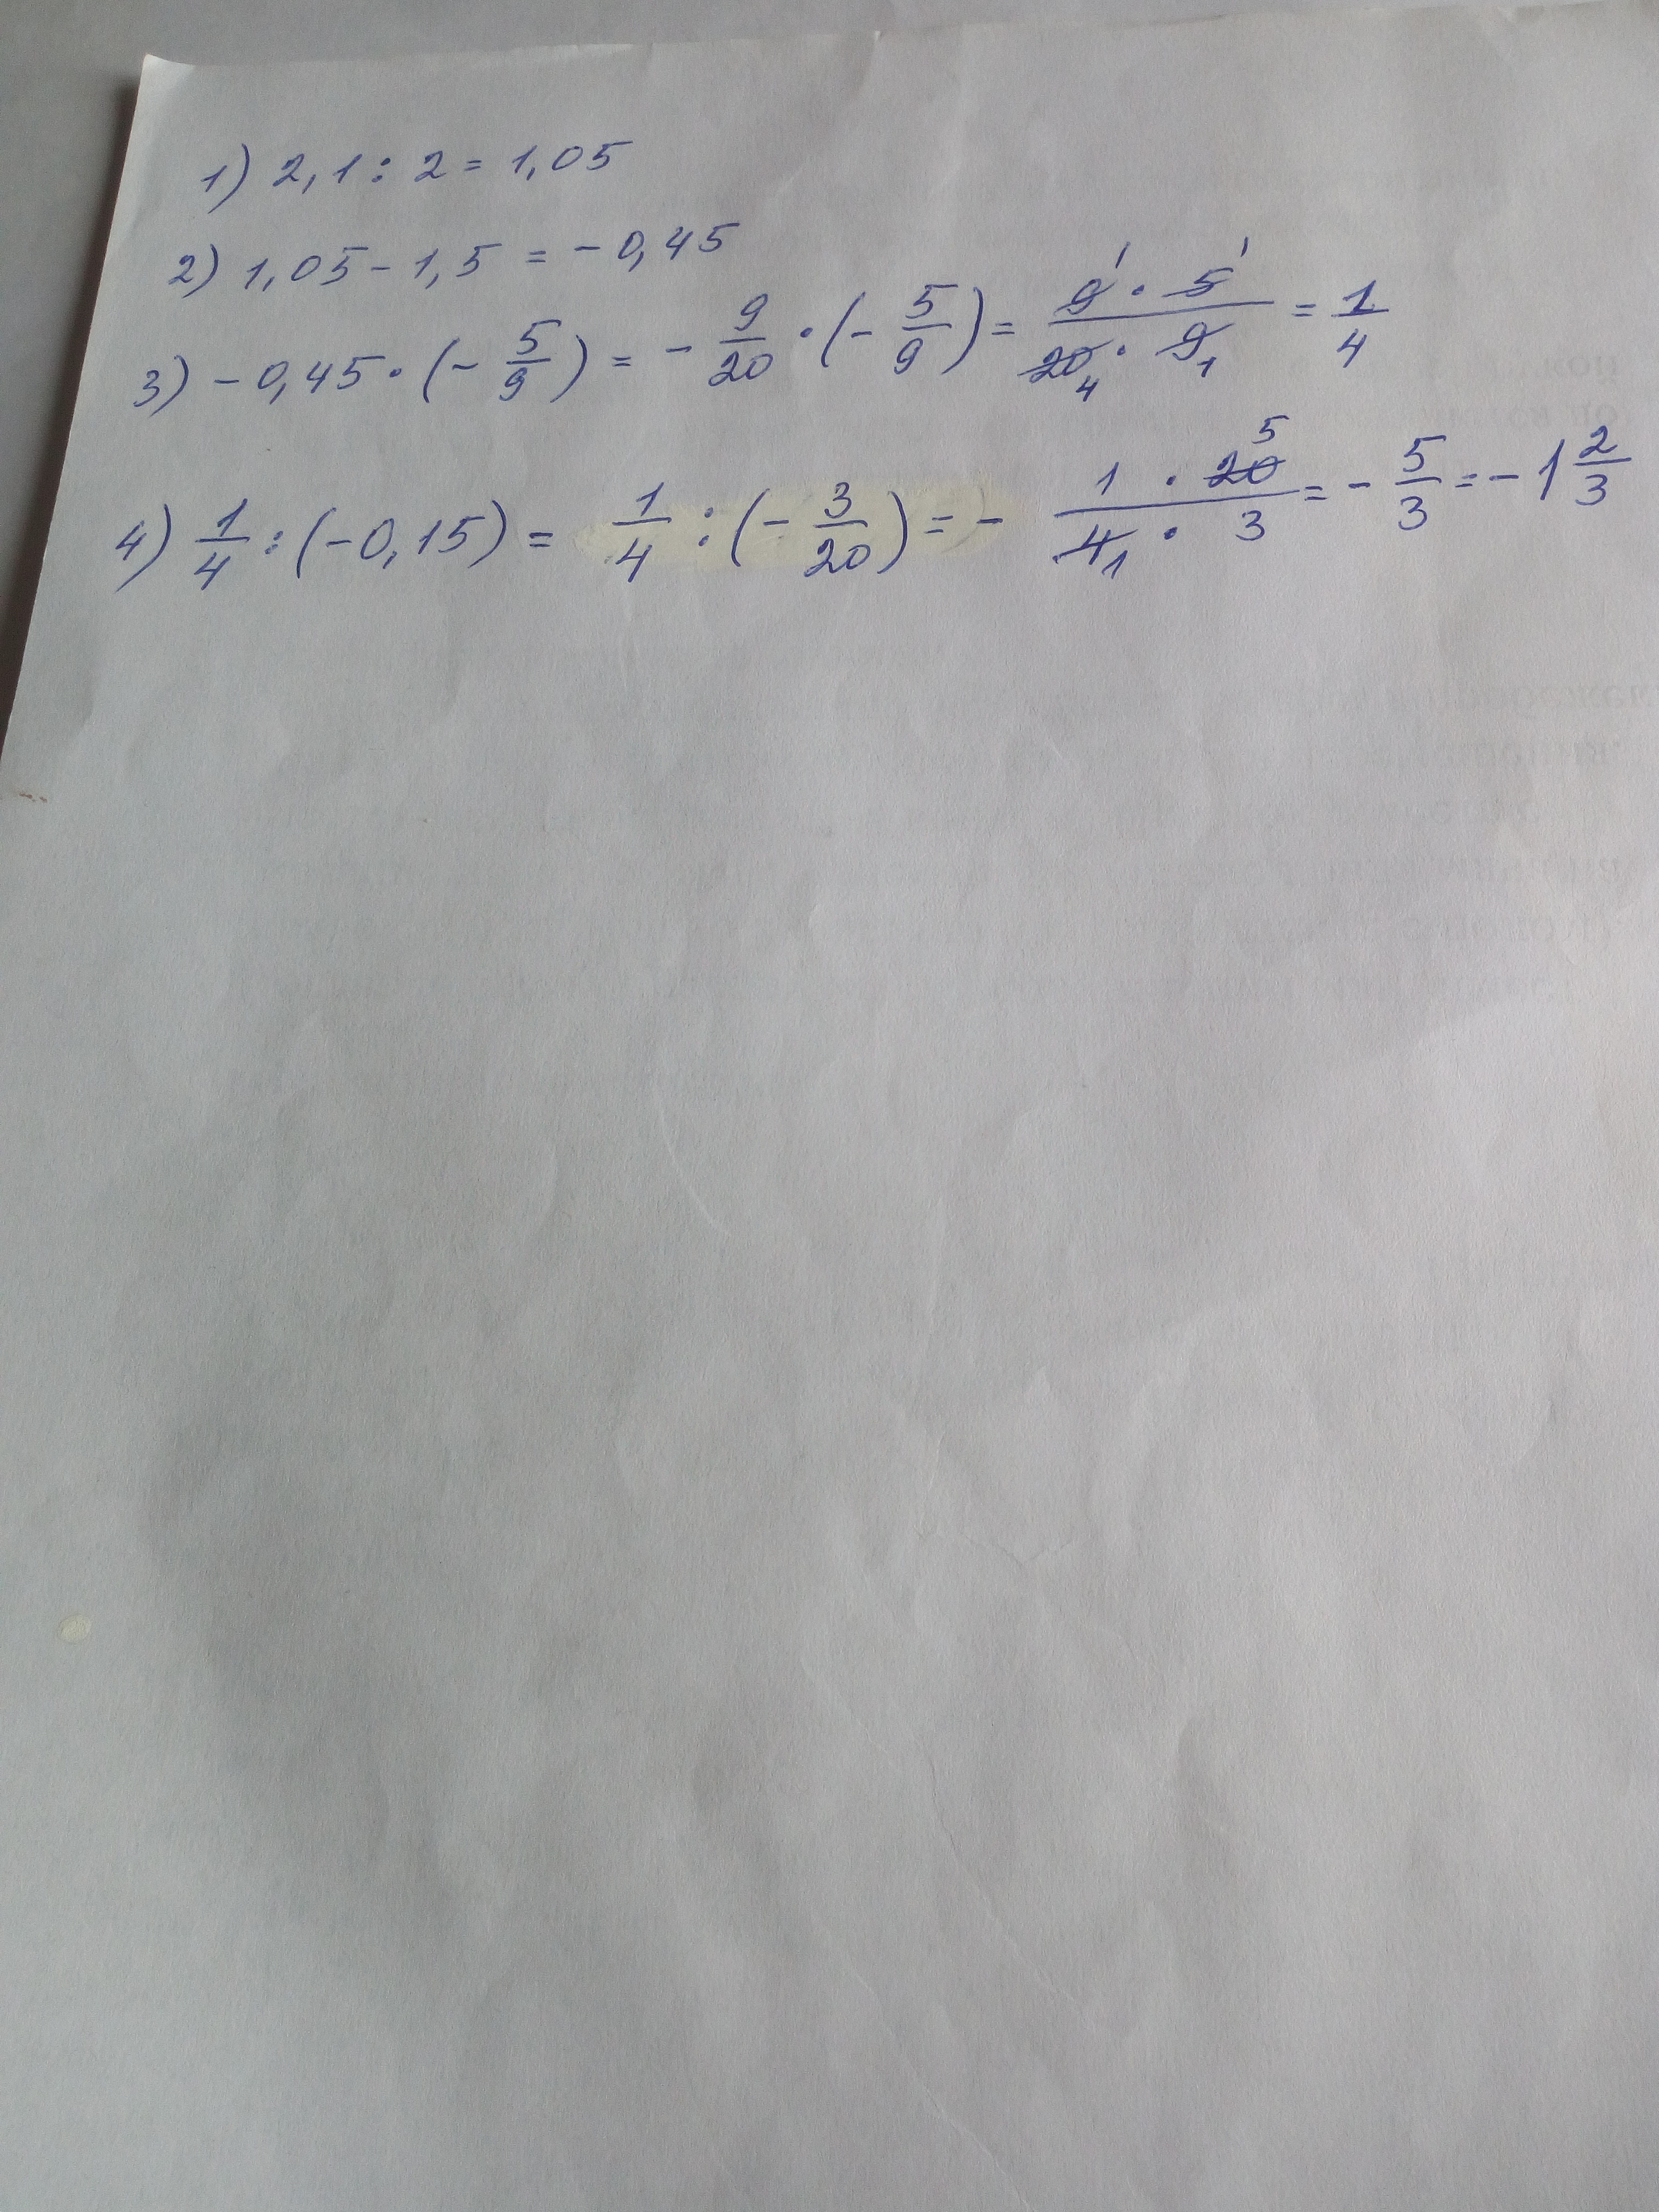 1) 2,1 : 2 = 1,05
2) 1,05 - 1,5 = - 0,45
3) - 0,45 · (- 5/9) = - 9/20 · (- 5/9) = 9 1 · 5 1 / 20 4 · 9 1 = 1/4
4) 1/4 : (-0,15) = 1/4 : (- 3/20) = - 1 · 20 5 / 4 1 · 3 = - 5/3 = - 1 2/3